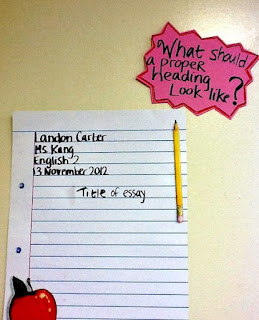 What should
a proper
Heading
Look like?
Landon Carter
Ms. Kang
English 2
13 November 2012
Title of essay